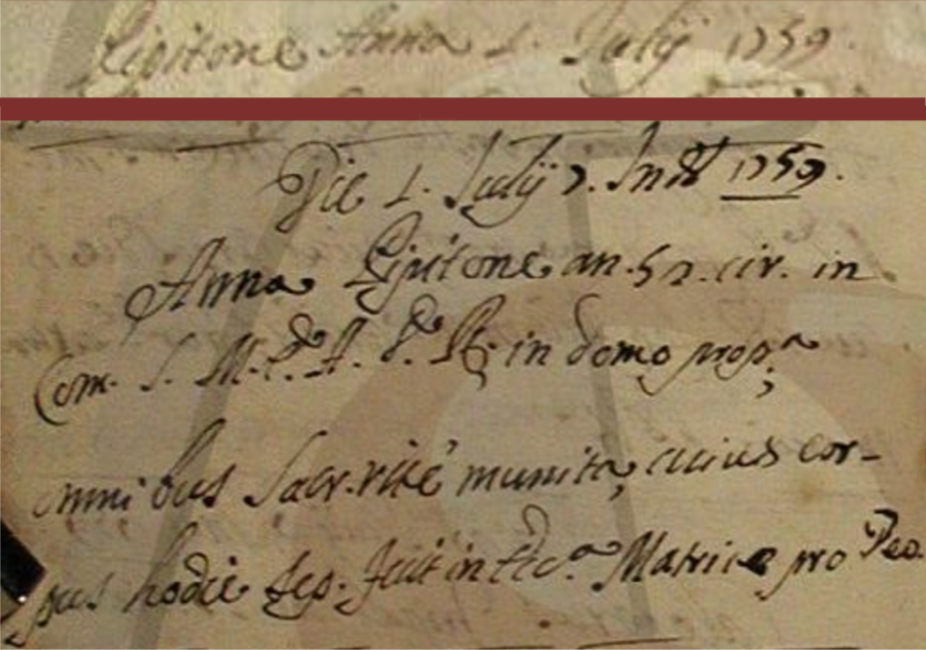 Lipitone Anna 1. Julij 1759.
Die 1. Julij 7. Ind. 1759.
Anna Lipitone an. 52. cir. in
Com. S. M. E. A. D. R. in domo prop.a
omnibus Sacr. rite munita, cuius cor-
pus hodie sep. fuit in Ecc.a Matrice pro Deo.